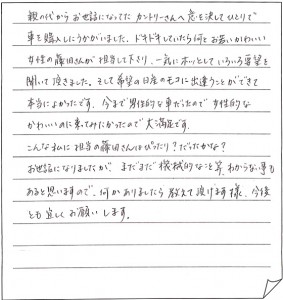 親の代からお世話になってた カントリーさんへ 意を決してひとりで
車を購入しにうかがいました。ドキドキしていたら何とお若いかわいい
女性の藤田さんが担当して下さり、一気にホッとしていろいろ要望を
聞いて頂きました。そして希望の日産のモコに出逢うことができて
本当によかったです。今まで男性的な車だったので女性的な
かわいいのに乗ってみたかったので大満足です。
こんな私に担当の藤田さんはぴったり？だったかな？
お世話になりましたが、まだまだ機械的なこと等、わからない事も
あると思いますので、何かありましたら教えて頂けます様、今後
とも宜しくお願いします。